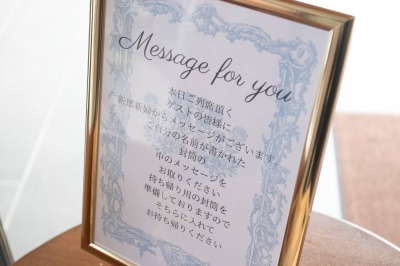 Message for you
本日ご列席頂く
ゲストの皆様に
新郎新婦からメッセージがございます
ご自分の名前が書かれた
封筒の
中のメッセージを
お取りください
持ち帰り用の封筒を
準備しておりますので
そちらに入れて
お持ち帰りください